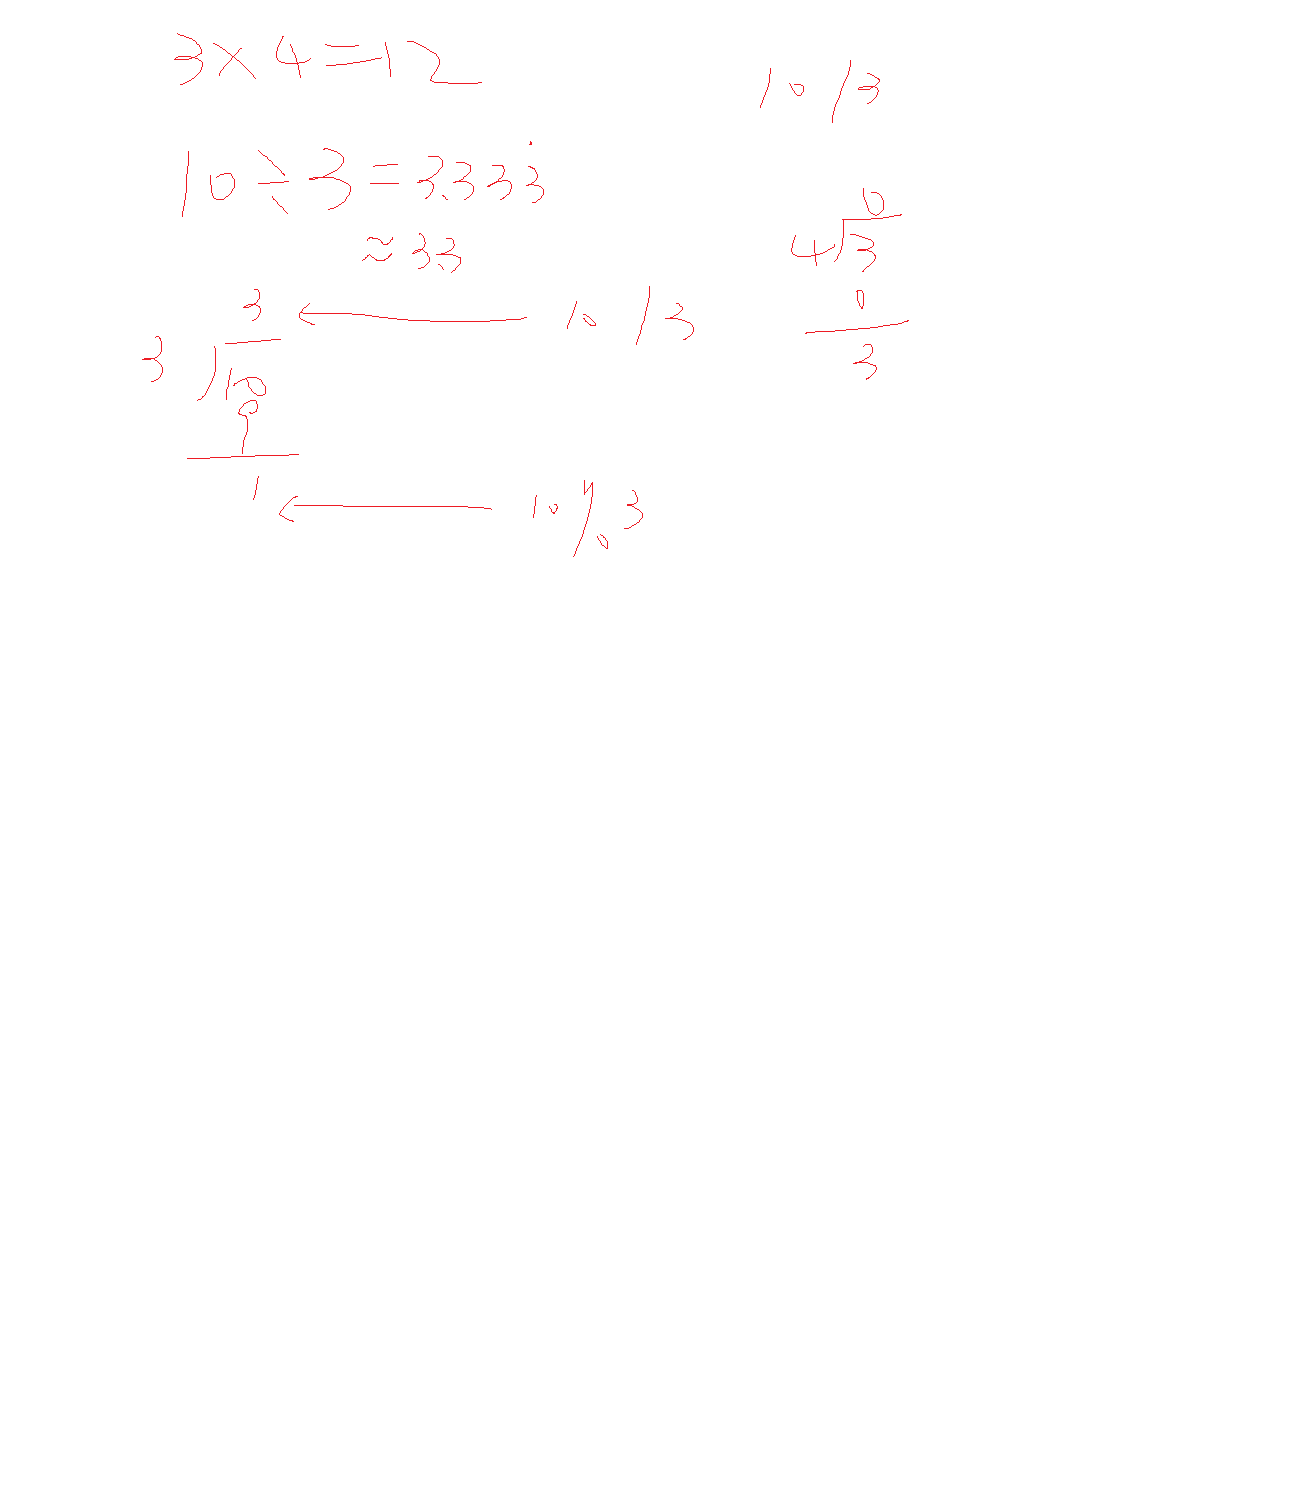 3×4=12
10÷3=3.333̇
≈3.3
3
3√10
9
1
10/3
10%3
10/3
0
4√3
0
3